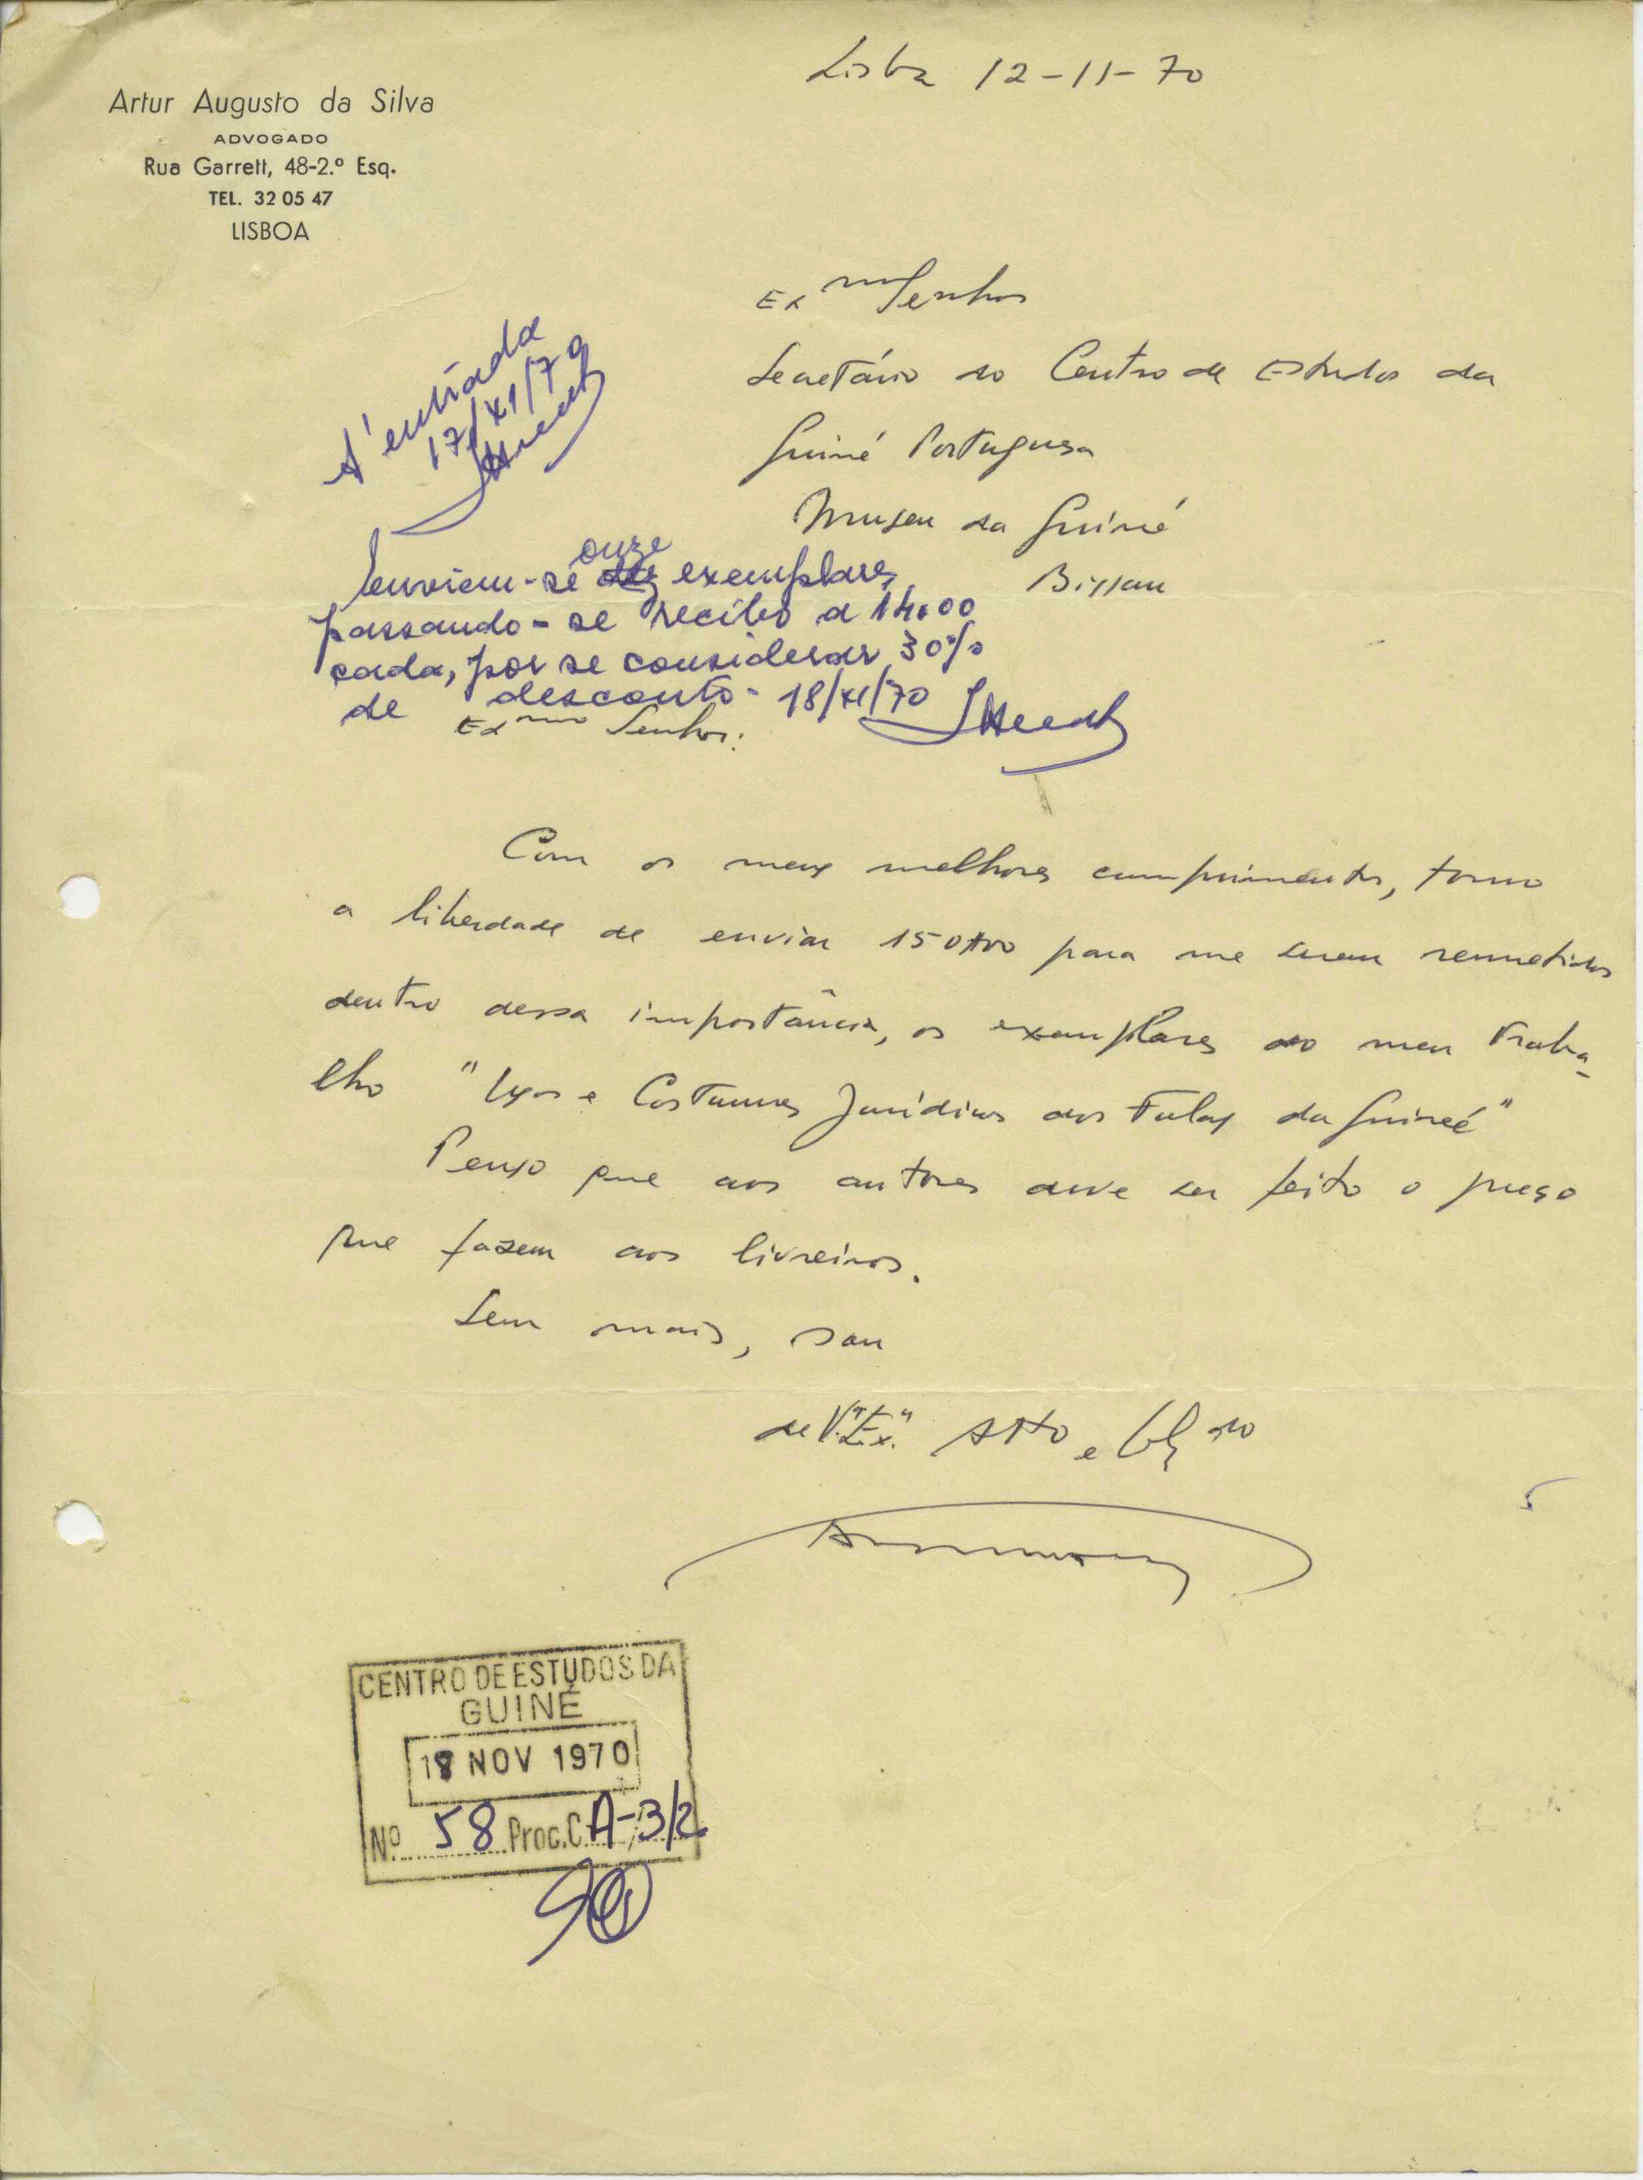 Artur Augusto da Silva
ADVOGADO
Rua Garrett, 48-2.º Esq.
TEL. 32 05 47
LISBOA
Lisboa 12-11-70
Exmo Senhor
Secretário do Centro de Estudos da
Guiné Portuguesa
Museu da Guiné
Bissau
À entrada
17/XI/70
onze
Enviem-se dez exemplares,
passando-se recibo a 14$00
cada, por se considerar 30%
de desconto - 18/XI/70
Exmo Senhor:
Com os meus melhores cumprimentos, tomo
a liberdade de enviar 150$00 para me serem remetidos
dentro dessa importância, os exemplares do meu traba-
lho "Usos e Costumes Jurídicos dos Fulas da Guiné"
Penso que aos autores deve ser feito o preço
que fazem aos livreiros.
Sem mais, sou
de V.ª Ex.ª Atto e Obgdo
CENTRO DE ESTUDOS DA
GUINÉ
18 NOV 1970
Nº 58 Proc. C A-3/2